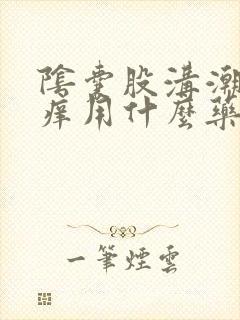 陰囊股溝潮
癢用什麼藥
一筆煙雲